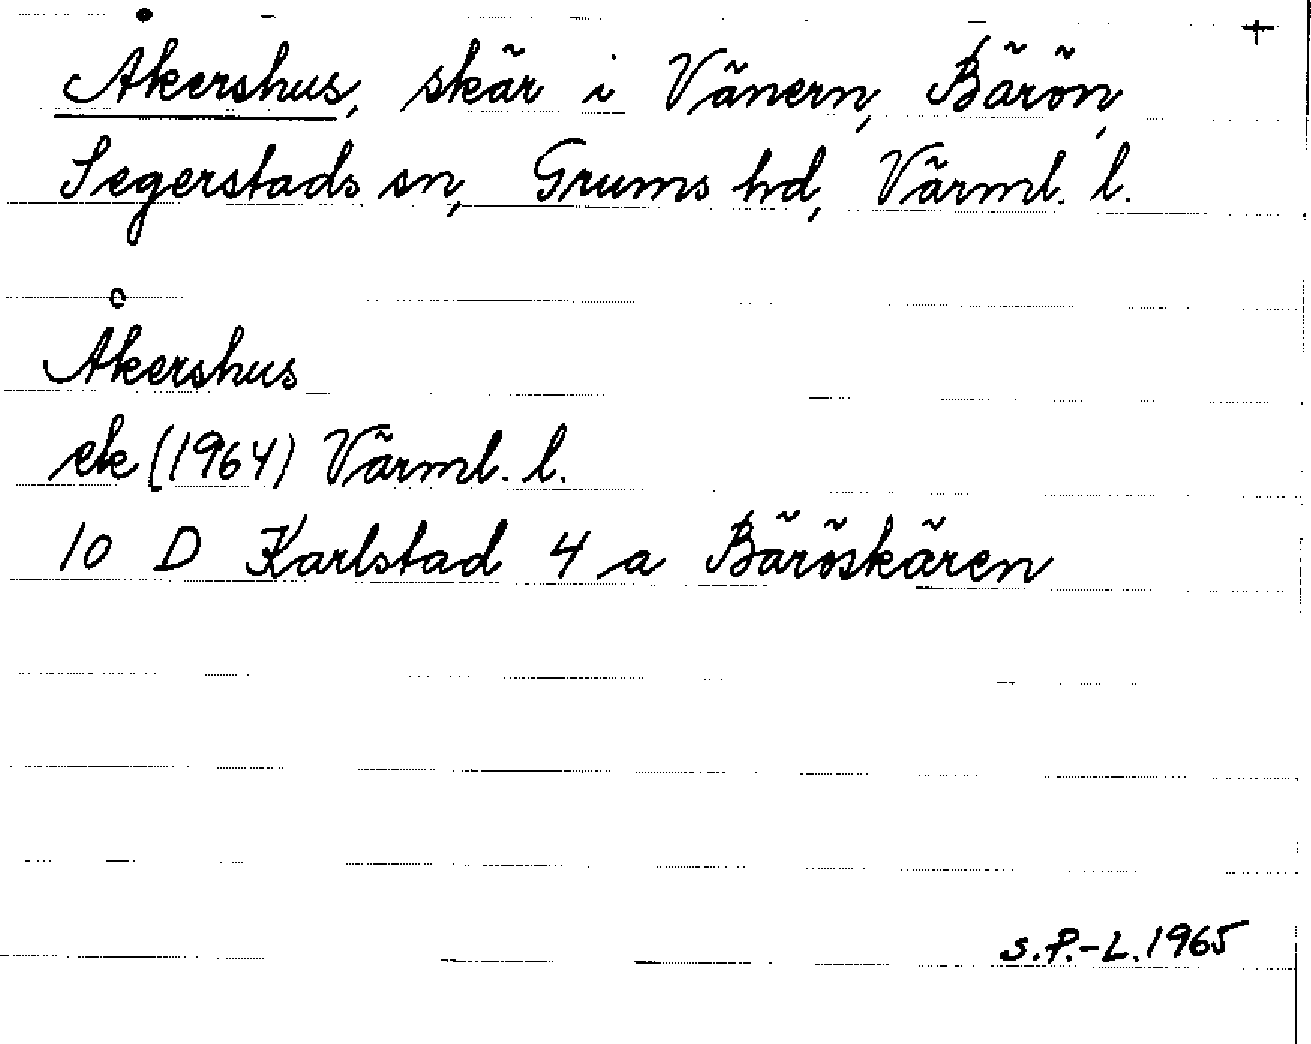 +
Åkershus, skär i Vänern, Bärön,
Segerstads sn, Grums hd, Värml. l.
Åkershus
ek (1964) Värml. l.
10 D Karlstad 4 a Bäröskären
S.P.-L. 1965